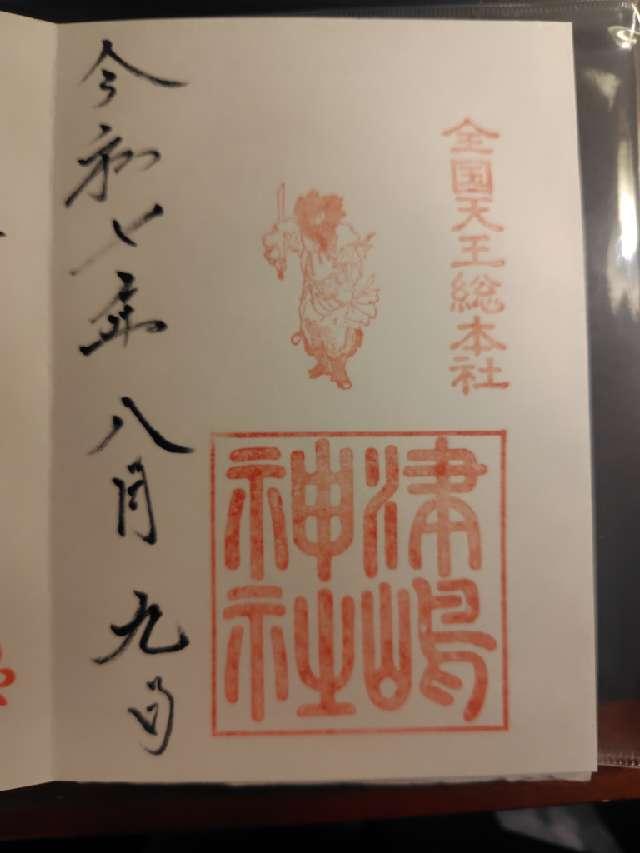 全国天王総本社
津嶋神社
令和七年八月九日